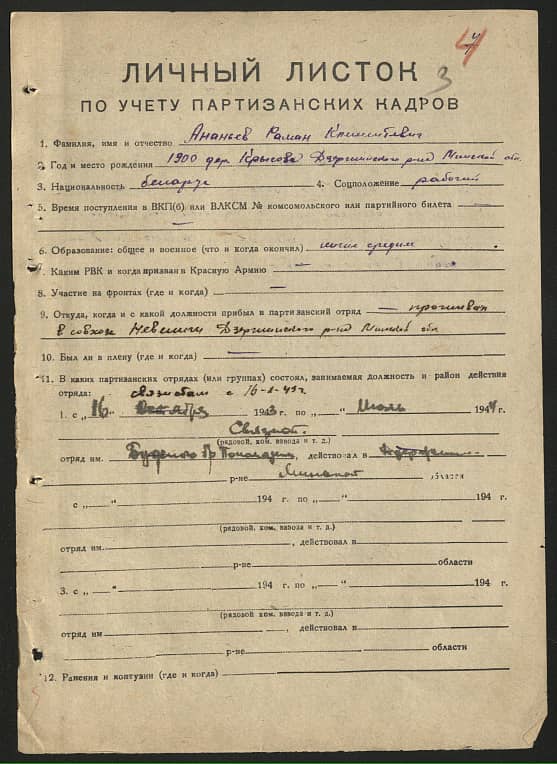 4
3
ЛИЧНЫЙ ЛИСТОК
ПО УЧЕТУ ПАРТИЗАНСКИХ КАДРОВ
1. Фамилия, имя и отчество Ананьев Раман
2. Год и место рождения 1900 дер. Крысова Дзержинского р-на Минской обл.
3. Национальность беларус 4. Соцположение рабочий
5. Время поступления в ВКП(б) или ВЛКСМ № комсомольского или партийного билета —
—
6. Образование: общее и военное (что и когда окончил)
7. Каким РВК и когда призван в Красную Армию —
8. Участие на фронтах (где и когда) —
9. Откуда, когда и с какой должности прибыл в партизанский отряд — проживал
в совхозе Дзержинского р-на Минской обл.
10. Был ли в плену (где и когда) —
11. В каких партизанских отрядах (или группах) состоял, занимаемая должность и район действия
отряда: с 16
1. с „16 1943 г. по „—“ Июль 1944 г.
Связной.
(рядовой, ком. взвода и т. д.)
отряд им. Буденого, действовал в
р-не Минской области
с „—“ 194 г. по „—“ 194 г.
(рядовой, ком. взвода и т. д.)
отряд им. , действовал в
р-не области
3. с „—“ 194 г. по „—“ 194 г.
(рядовой ком. взвода и т. д.)
отряд им , действовал в
р-не области
12. Ранения и контузии (где и когда)